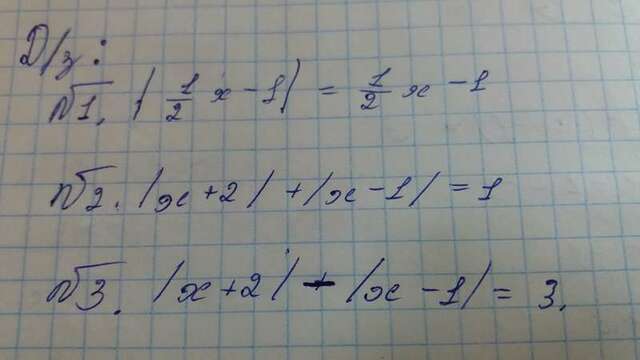 Д/з:
№1. |1/2 x - 1| = 1/2 x - 1
№2. |x + 2| + |x - 1| = 1
№3. |x + 2| - |x - 1| = 3.